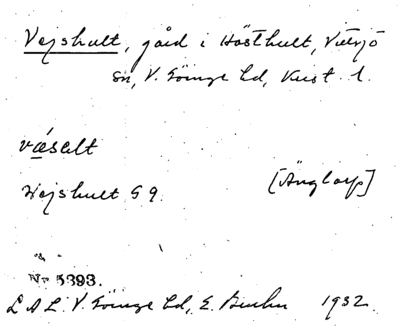 Vejshult, gård i Hästhult, Vittsjö
sn, V. Göinge hd, Krist. l.
vǽ̨salt
Wejshult S 9.
[Änglarp]
No 5393.
L A L. V. Göinge hd, E. 1932.